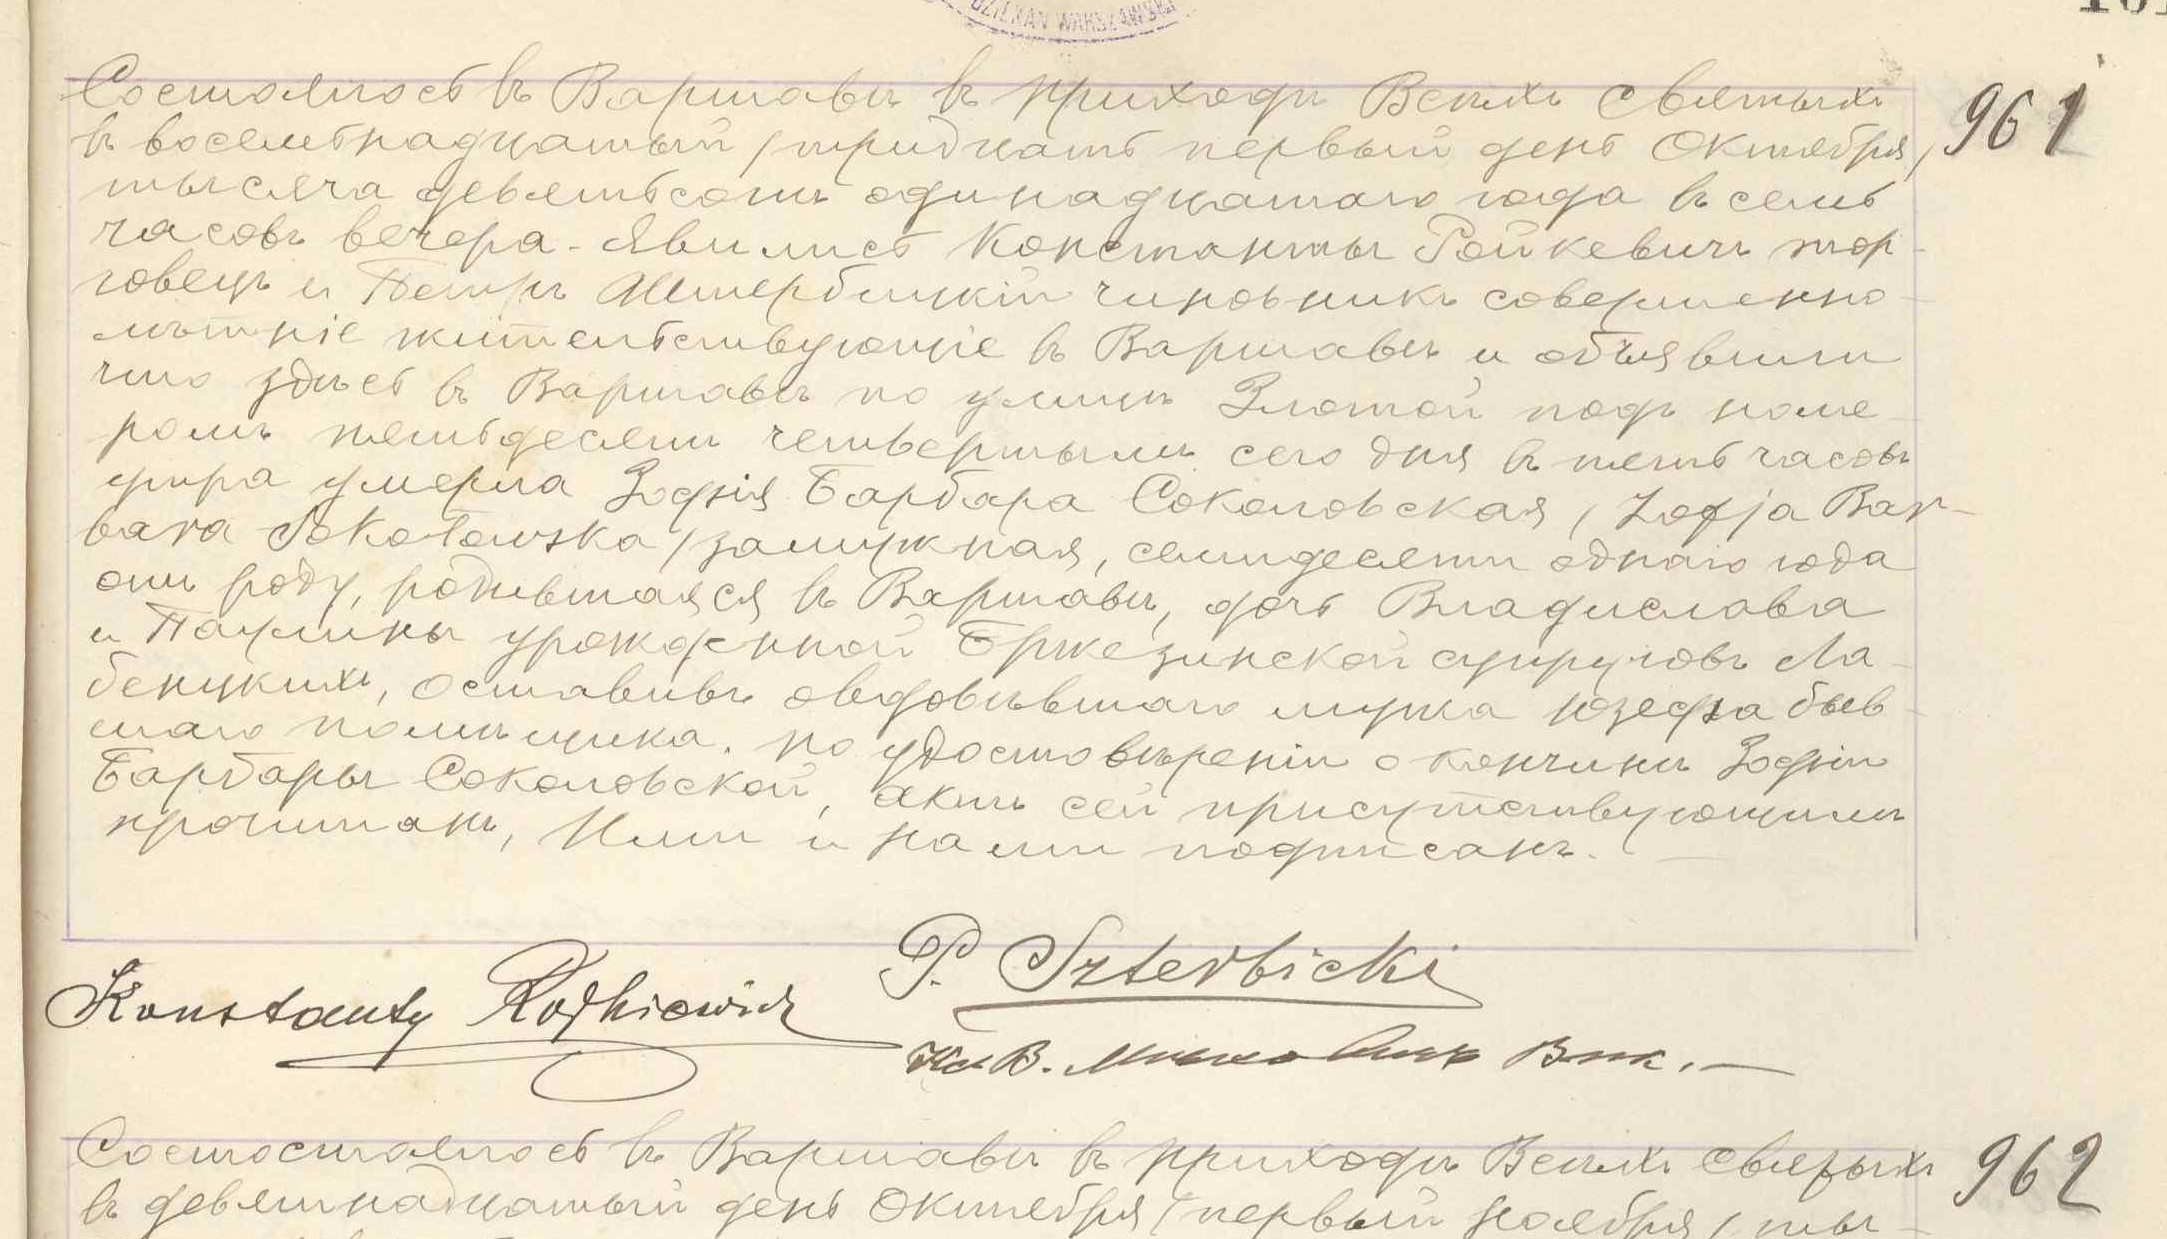 DZIEKAN WARSZAWSKI
101
Состоялось въ Варшавѣ въ приходѣ Всѣхъ Святыхъ
961
въ восемьнадцатый /тридцать первый день Октября/
тысяча девятьсотъ одинадцатаго года въ семь
часовъ вечера. Явились Константы Ройкевичъ тор-
говецъ и Петръ Штербицкій чиновникъ совершенно-
лѣтніе жительствующіе въ Варшавѣ и объявили
что здѣсь въ Варшавѣ по улицѣ Злотой подъ номе-
ромъ пятьдесятъ четвертымъ сего дня въ пять часовъ
утра умерла Зофія Барбара Соколовская, /Zofja Bar-
bara Sokołowska/ замужная, семидесяти одного года
отъ роду, родившаяся въ Варшавѣ, дочь Владислава
и Паулины урожденной Бржезинской супруговъ Ла-
бенцкихъ, оставивъ овдовѣвшаго мужа Юзефа быв-
шаго помѣщика. По удостовѣреніи о кончинѣ Зофіи
Барбары Соколовской, актъ сей присутствующимъ
прочитанъ, Ими и нами подписанъ.
P. Szterbicki
Konstanty Rojkiewicz
Кс. В. Вик.
Состостоялось въ Варшавѣ въ приходѣ Всѣхъ Святыхъ
962
въ девятнадцатый день Октября /первый Ноября/ ты-